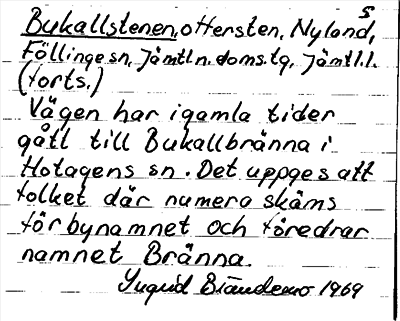 s
Bukallstenen, offersten, Nyland,
Föllinge sn, Jämtl.n.doms.tg, Jämtl.l.
(forts.)
Vägen har i gamla tider
gått till Bukallbränna i
Hotagens sn. Det uppges att
folket där numera skäms
för bynamnet och föredrar
namnet Bränna.
Ingrid 1969